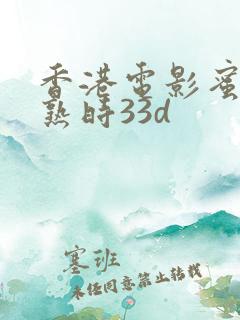 香港電影蜜
熟時33d
塞班
未经同意禁止转载